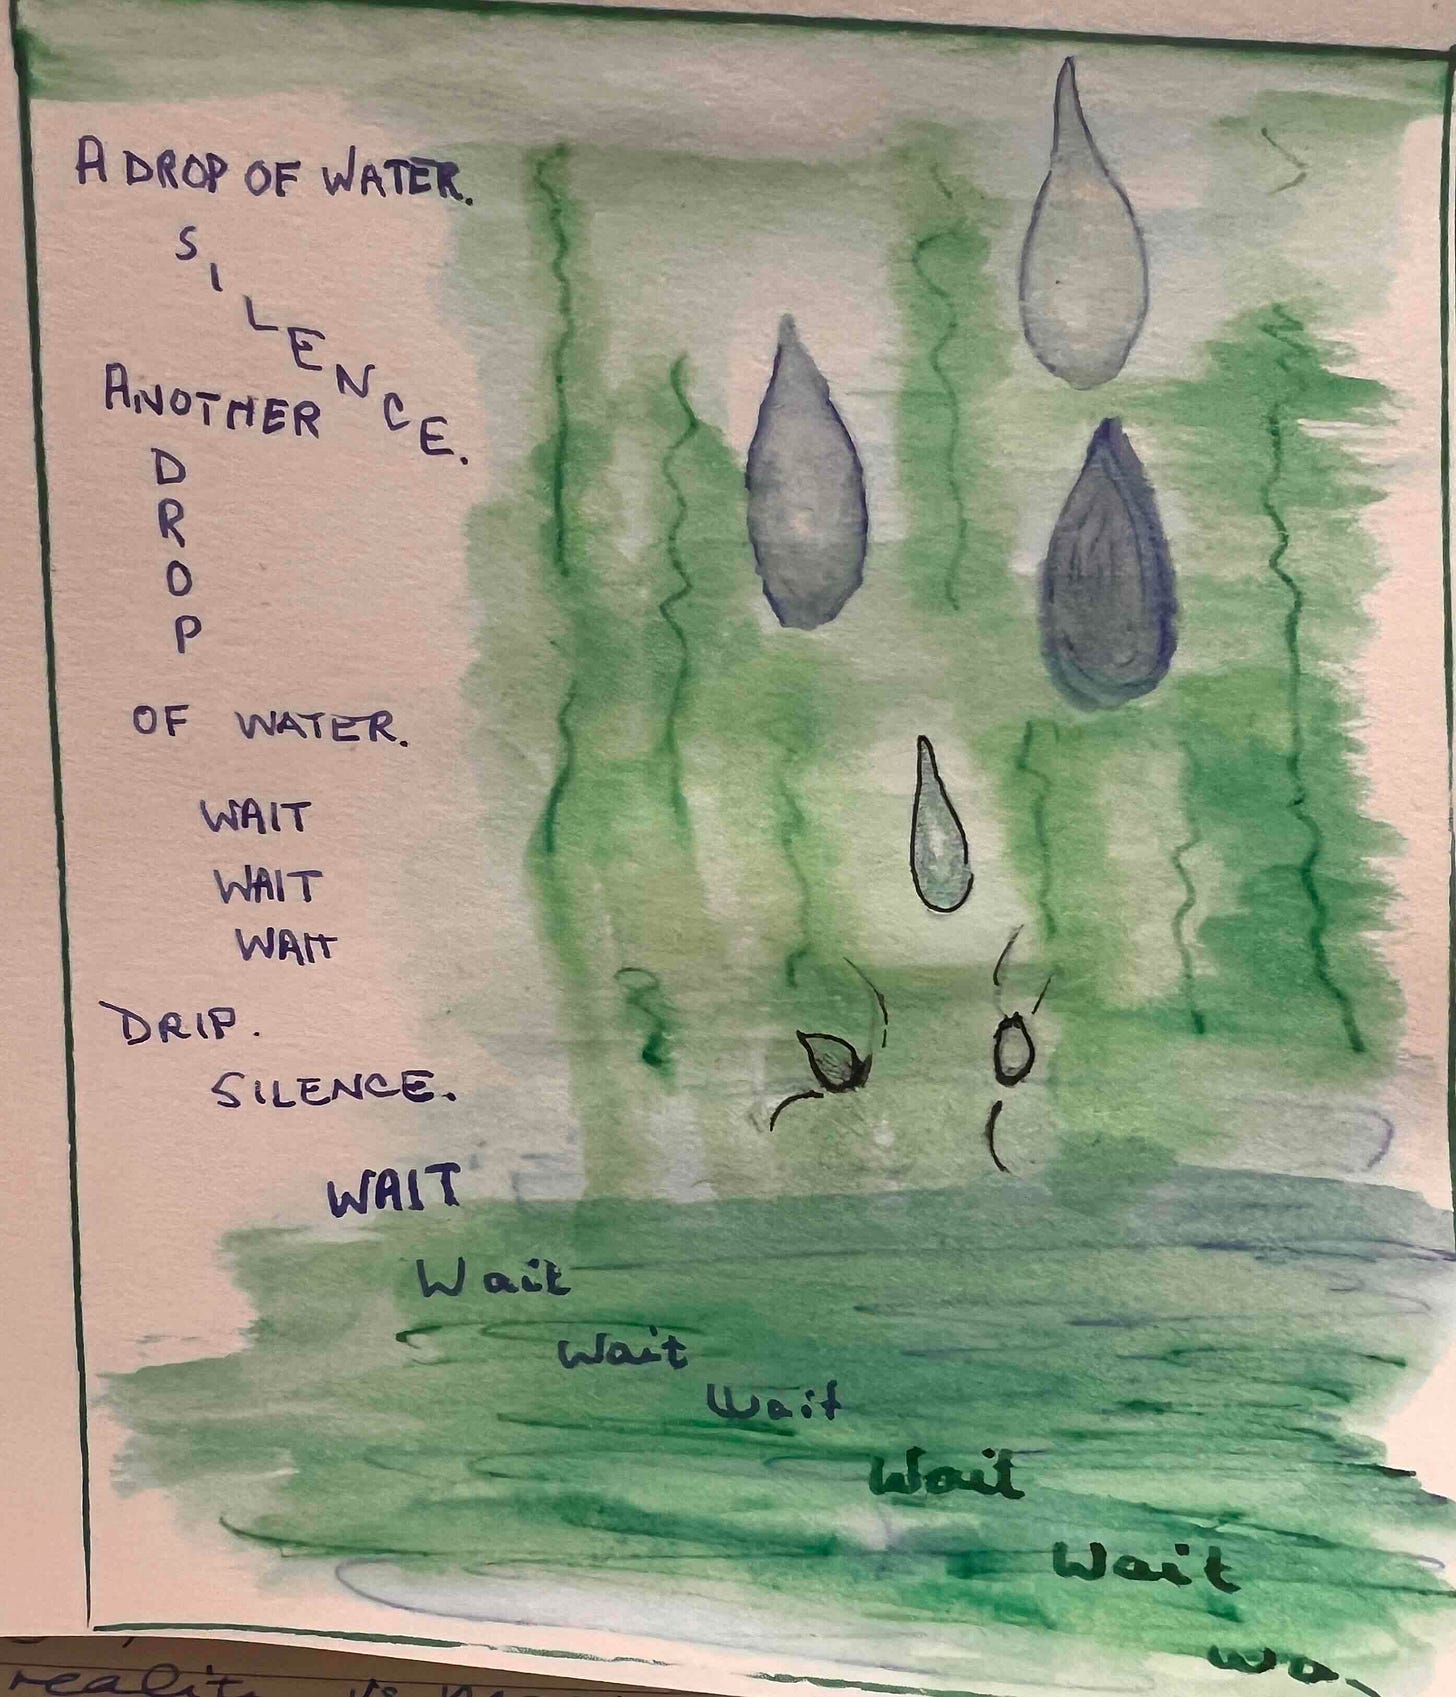 A DROP OF WATER.
SILENCE.
ANOTHER
D
R
O
P
OF WATER.
WAIT
WAIT
WAIT
DRIP.
SILENCE.
WAIT
Wait
Wait
Wait
Wait
Wait
wa.
reality is